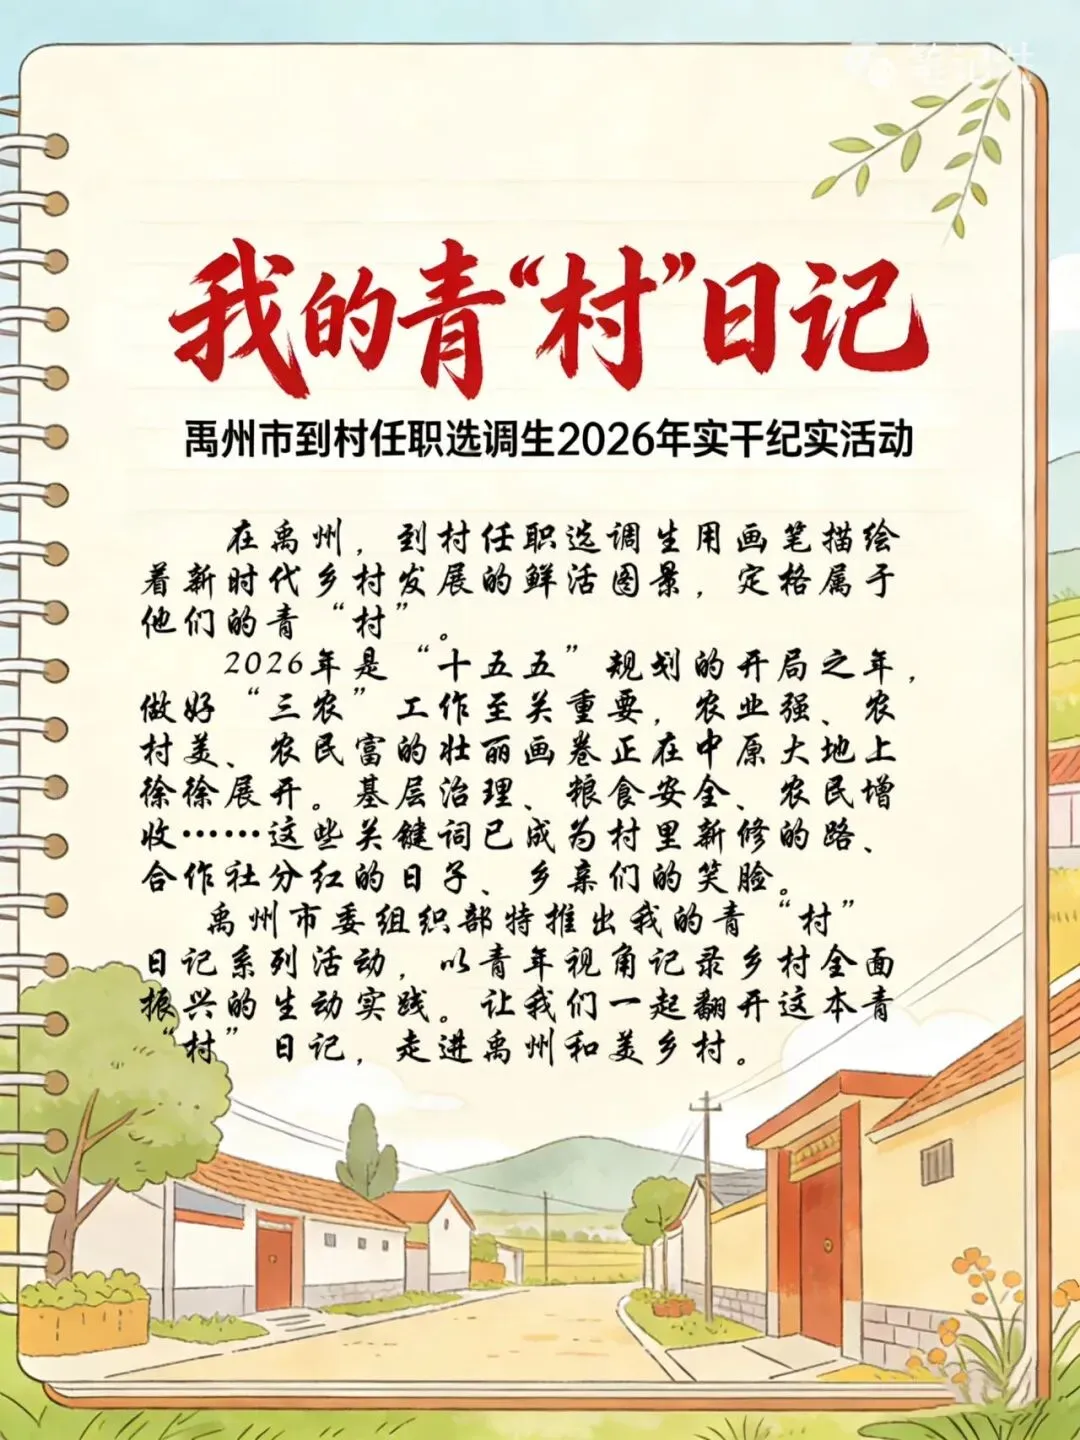 笔记
我的青“村”日记
禹州市到村任职选调生2026年实干纪实活动
在禹州，到村任职选调生用画笔描绘
着新时代乡村发展的鲜活图景，定格属于
他们的青“村”。
2026年是“十五五”规划的开局之年，
做好“三农”工作至关重要，农业强、农
村美、农民富的壮丽画卷正在中原大地上
徐徐展开。基层治理、粮食安全、农民增
收……这些关键词已成为村里新修的路、
合作社分红的日子、乡亲们的笑脸。
禹州市委组织部特推出我的青“村”
日记系列活动，以青年视角记录乡村全面
振兴的生动实践。让我们一起翻开这本青
“村”日记，走进禹州和美乡村。